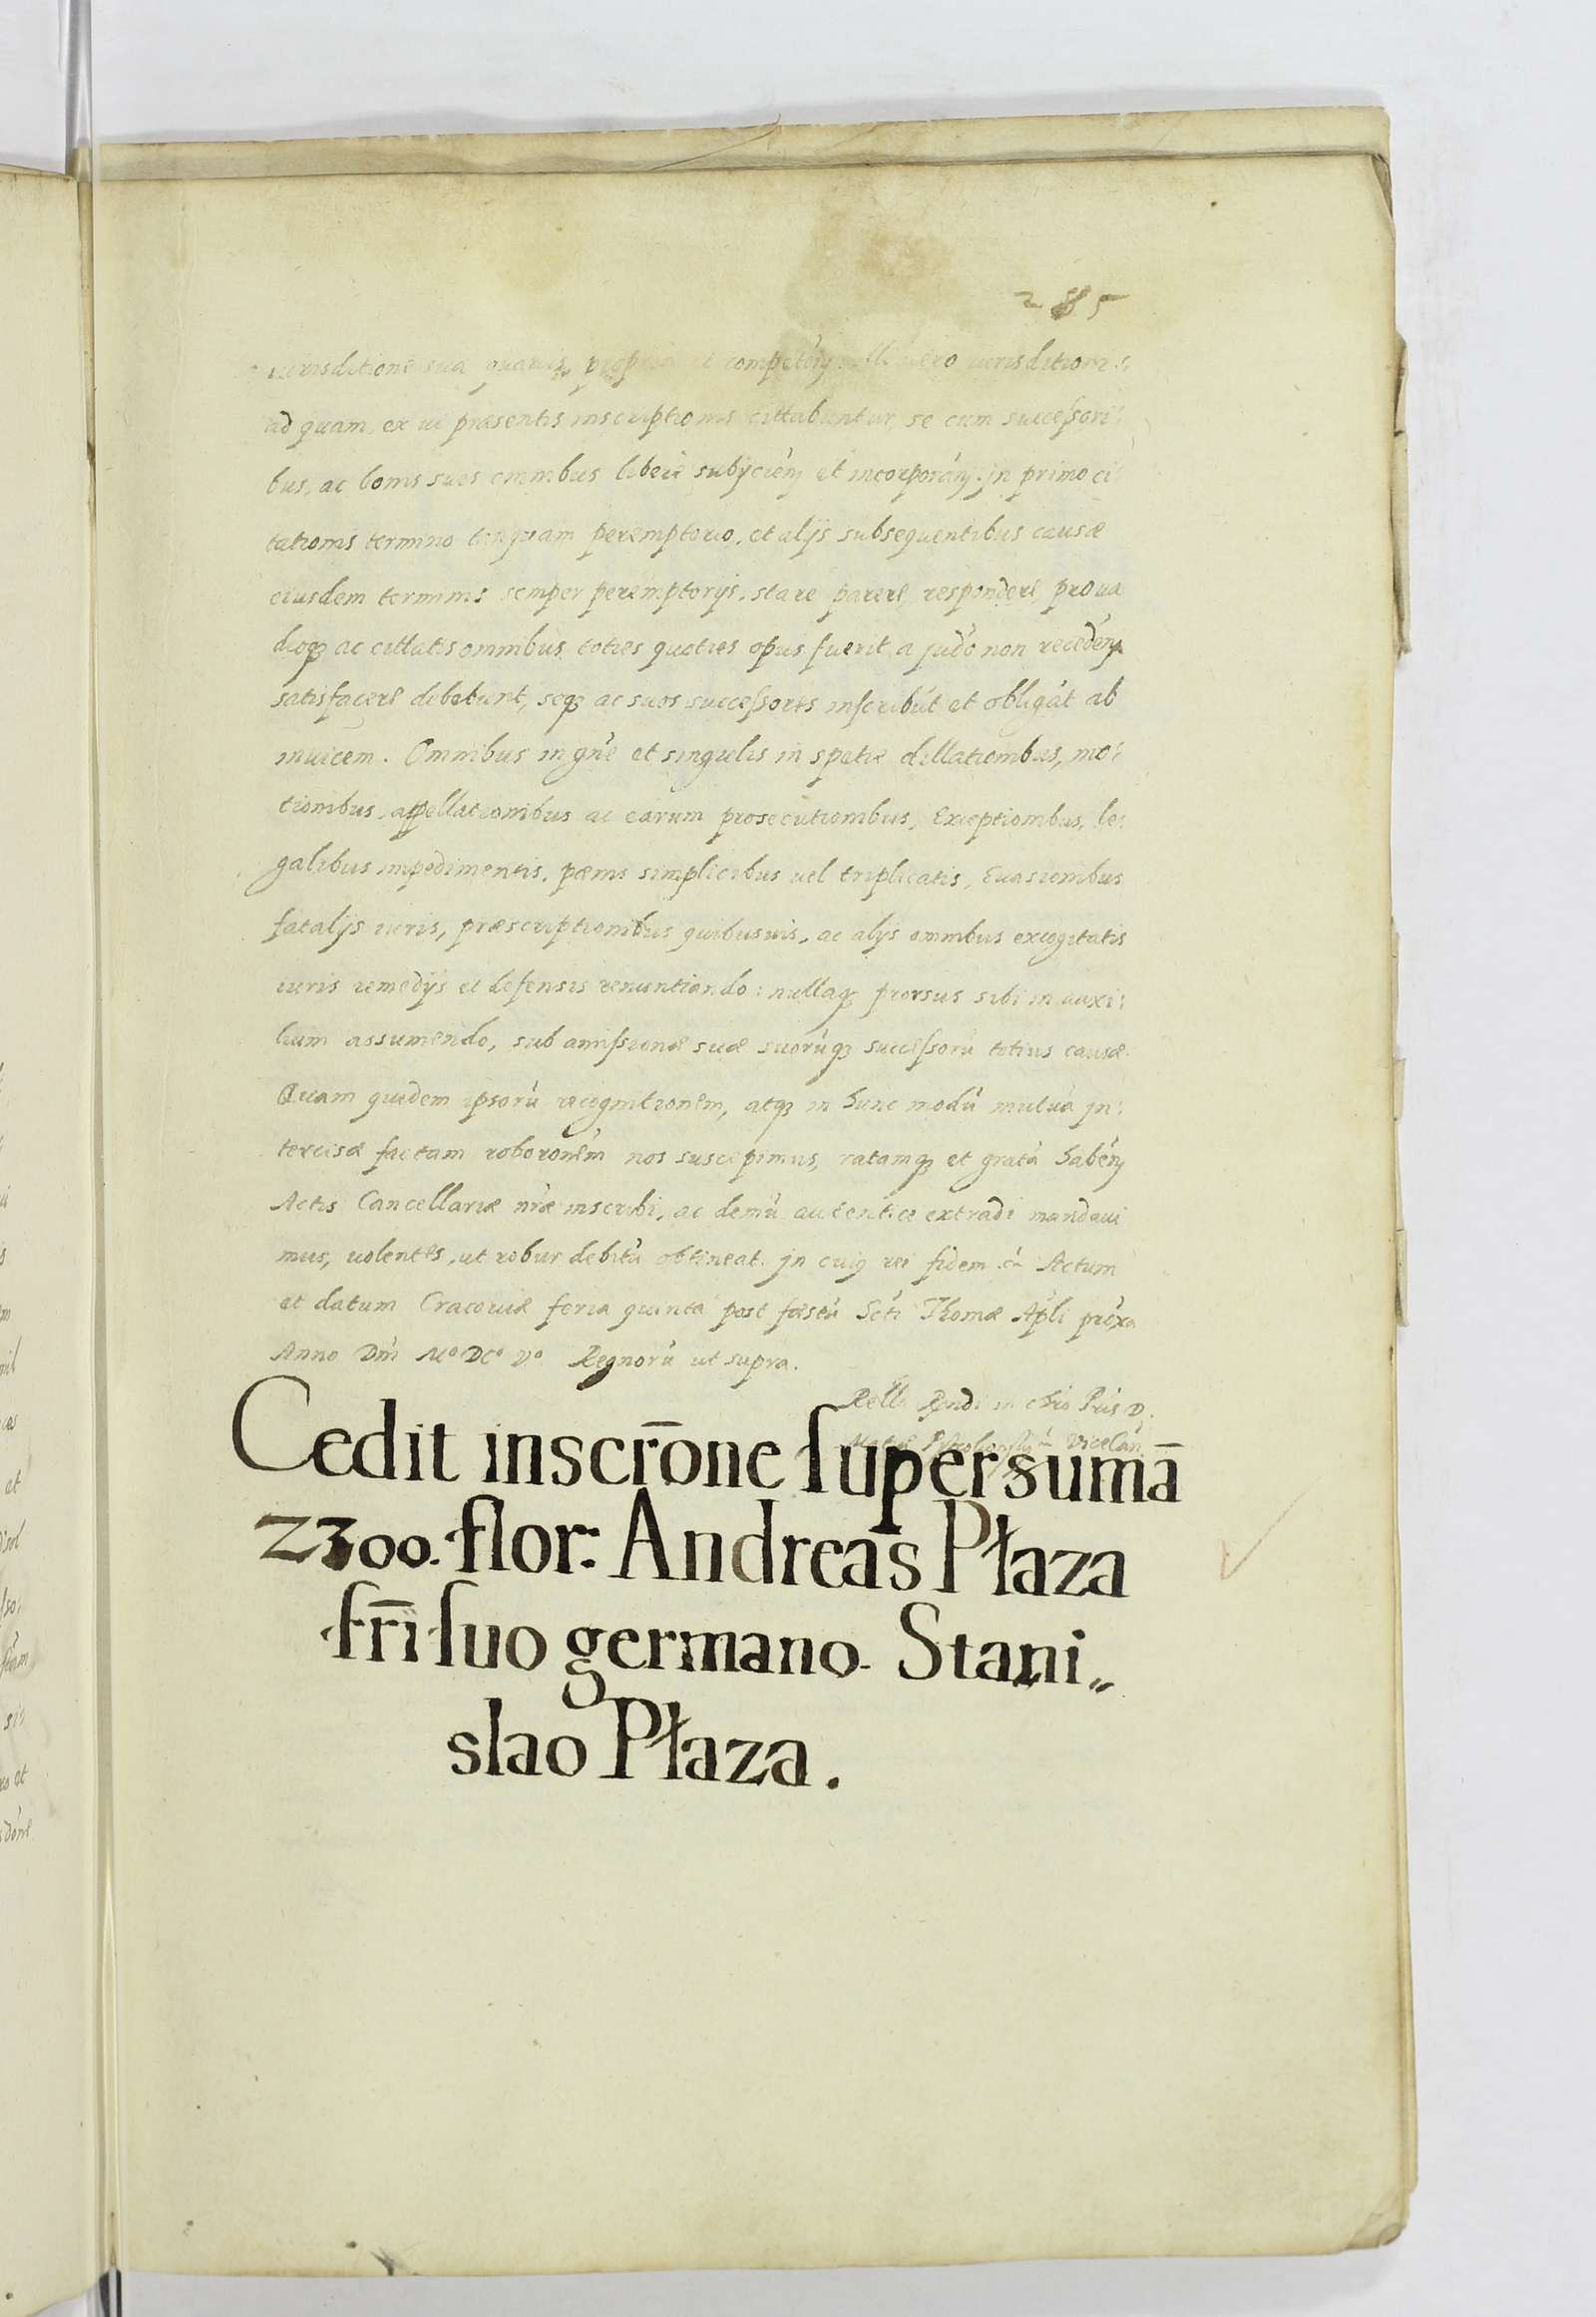 285
iurisditione sua quavis propria et competen̄ uero iurisditioni:
ad quam ex ui præsentis inscriptionis cittabuntur, se cum successori:
bus, ac bonis suis omnibus libere subijcien̄ et incorporan̄. jn primo ci
tationis termino tanquam peremptorio, et alijs subsequentibus causæ
eiusdem terminis semper peremptorijs, stare parere respondere proua
dioq3 ac cittatis omnibus toties quoties opus fuerit a judo non receden̄
satisfacere debebunt, seq3 ac suos successores inscribūt et obligāt ab
inuicem. Omnibus in gn̄e et singulis in spetie dillationibus, mo:
tionibus, appellationibus ac earum prosecutionibus, Exceptionibus, le:
galibus impedimentis, pœnis simplicibus uel triplicatis, Euasionibus
fatalijs iuris, præscriptionibus quibusuis, ac alijs omnibus excogitatis
iuris remedijs et defensis renuntiando: nullaq3 prorsus sibi in auxi:
lium assumendo, sub amissione suæ suorūq3 successorū totius causæ.
Quam quidem ipsorū recognitionem, atq3 in hunc modū mutuā jn:
tercisæ factam roboronēm nos suscepimus, ratamq3 et gratā haben̄
Actis Cancellariæ nr̄æ inscribi, ac demū autentice extradi mandaui
mus, uolentes, ut robur debitū obtineat. jn cuiq rei fidem Actum
et datum Cracouiæ feria quinta post festū Scti Thomæ Apli proxa
Anno Dni Mo DCo Vo Regnorū ut supra.
Rella Rndi in chro Pris D.
Vicecan
Cedit inscr̄one super sumā
2300. flor: Andreas Płaza
fr̄i suo germano Stani„
slao Płaza.